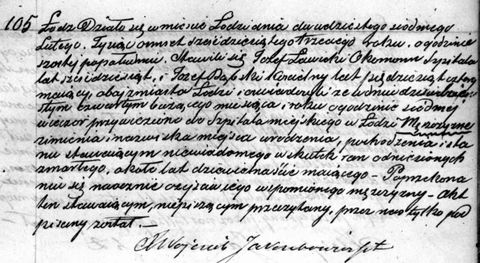 105 Łodz. Działo się w mieście Łodzi dnia dwudziestego siódmego
Lutego, Tysiąc ośmset sześćdziesiątego trzeciego roku, o godzinie
szóstej popołudniu. Stawili się Józef Ławicki Ekonom Szpitala
lat sześćdziesiąt, i Józef Kościelny lat sześćdziesiąt
mający, obaj z miasta Łodzi, i oświadczyli że w dniu dwudzie-
stym czwartym bieżącego miesiąca, i roku o godzinie siódmej
wieczór przywieziono do Szpitala miejskiego w Łodzi Mężczyznę
z imienia i nazwiska miejsca urodzenia, pochodzenia i sta-
nu stawającym niewiadomego w skutek ran odniesionych
zmarłego, około lat dziewiętnaście mającego – Po przekona-
niu się naocznie o zejściu wspomnionego mężczyzny – Akt
ten stawającym, niepiszącym przeczytany, przez nas tylko pod-
pisany został. –
X Wojciech